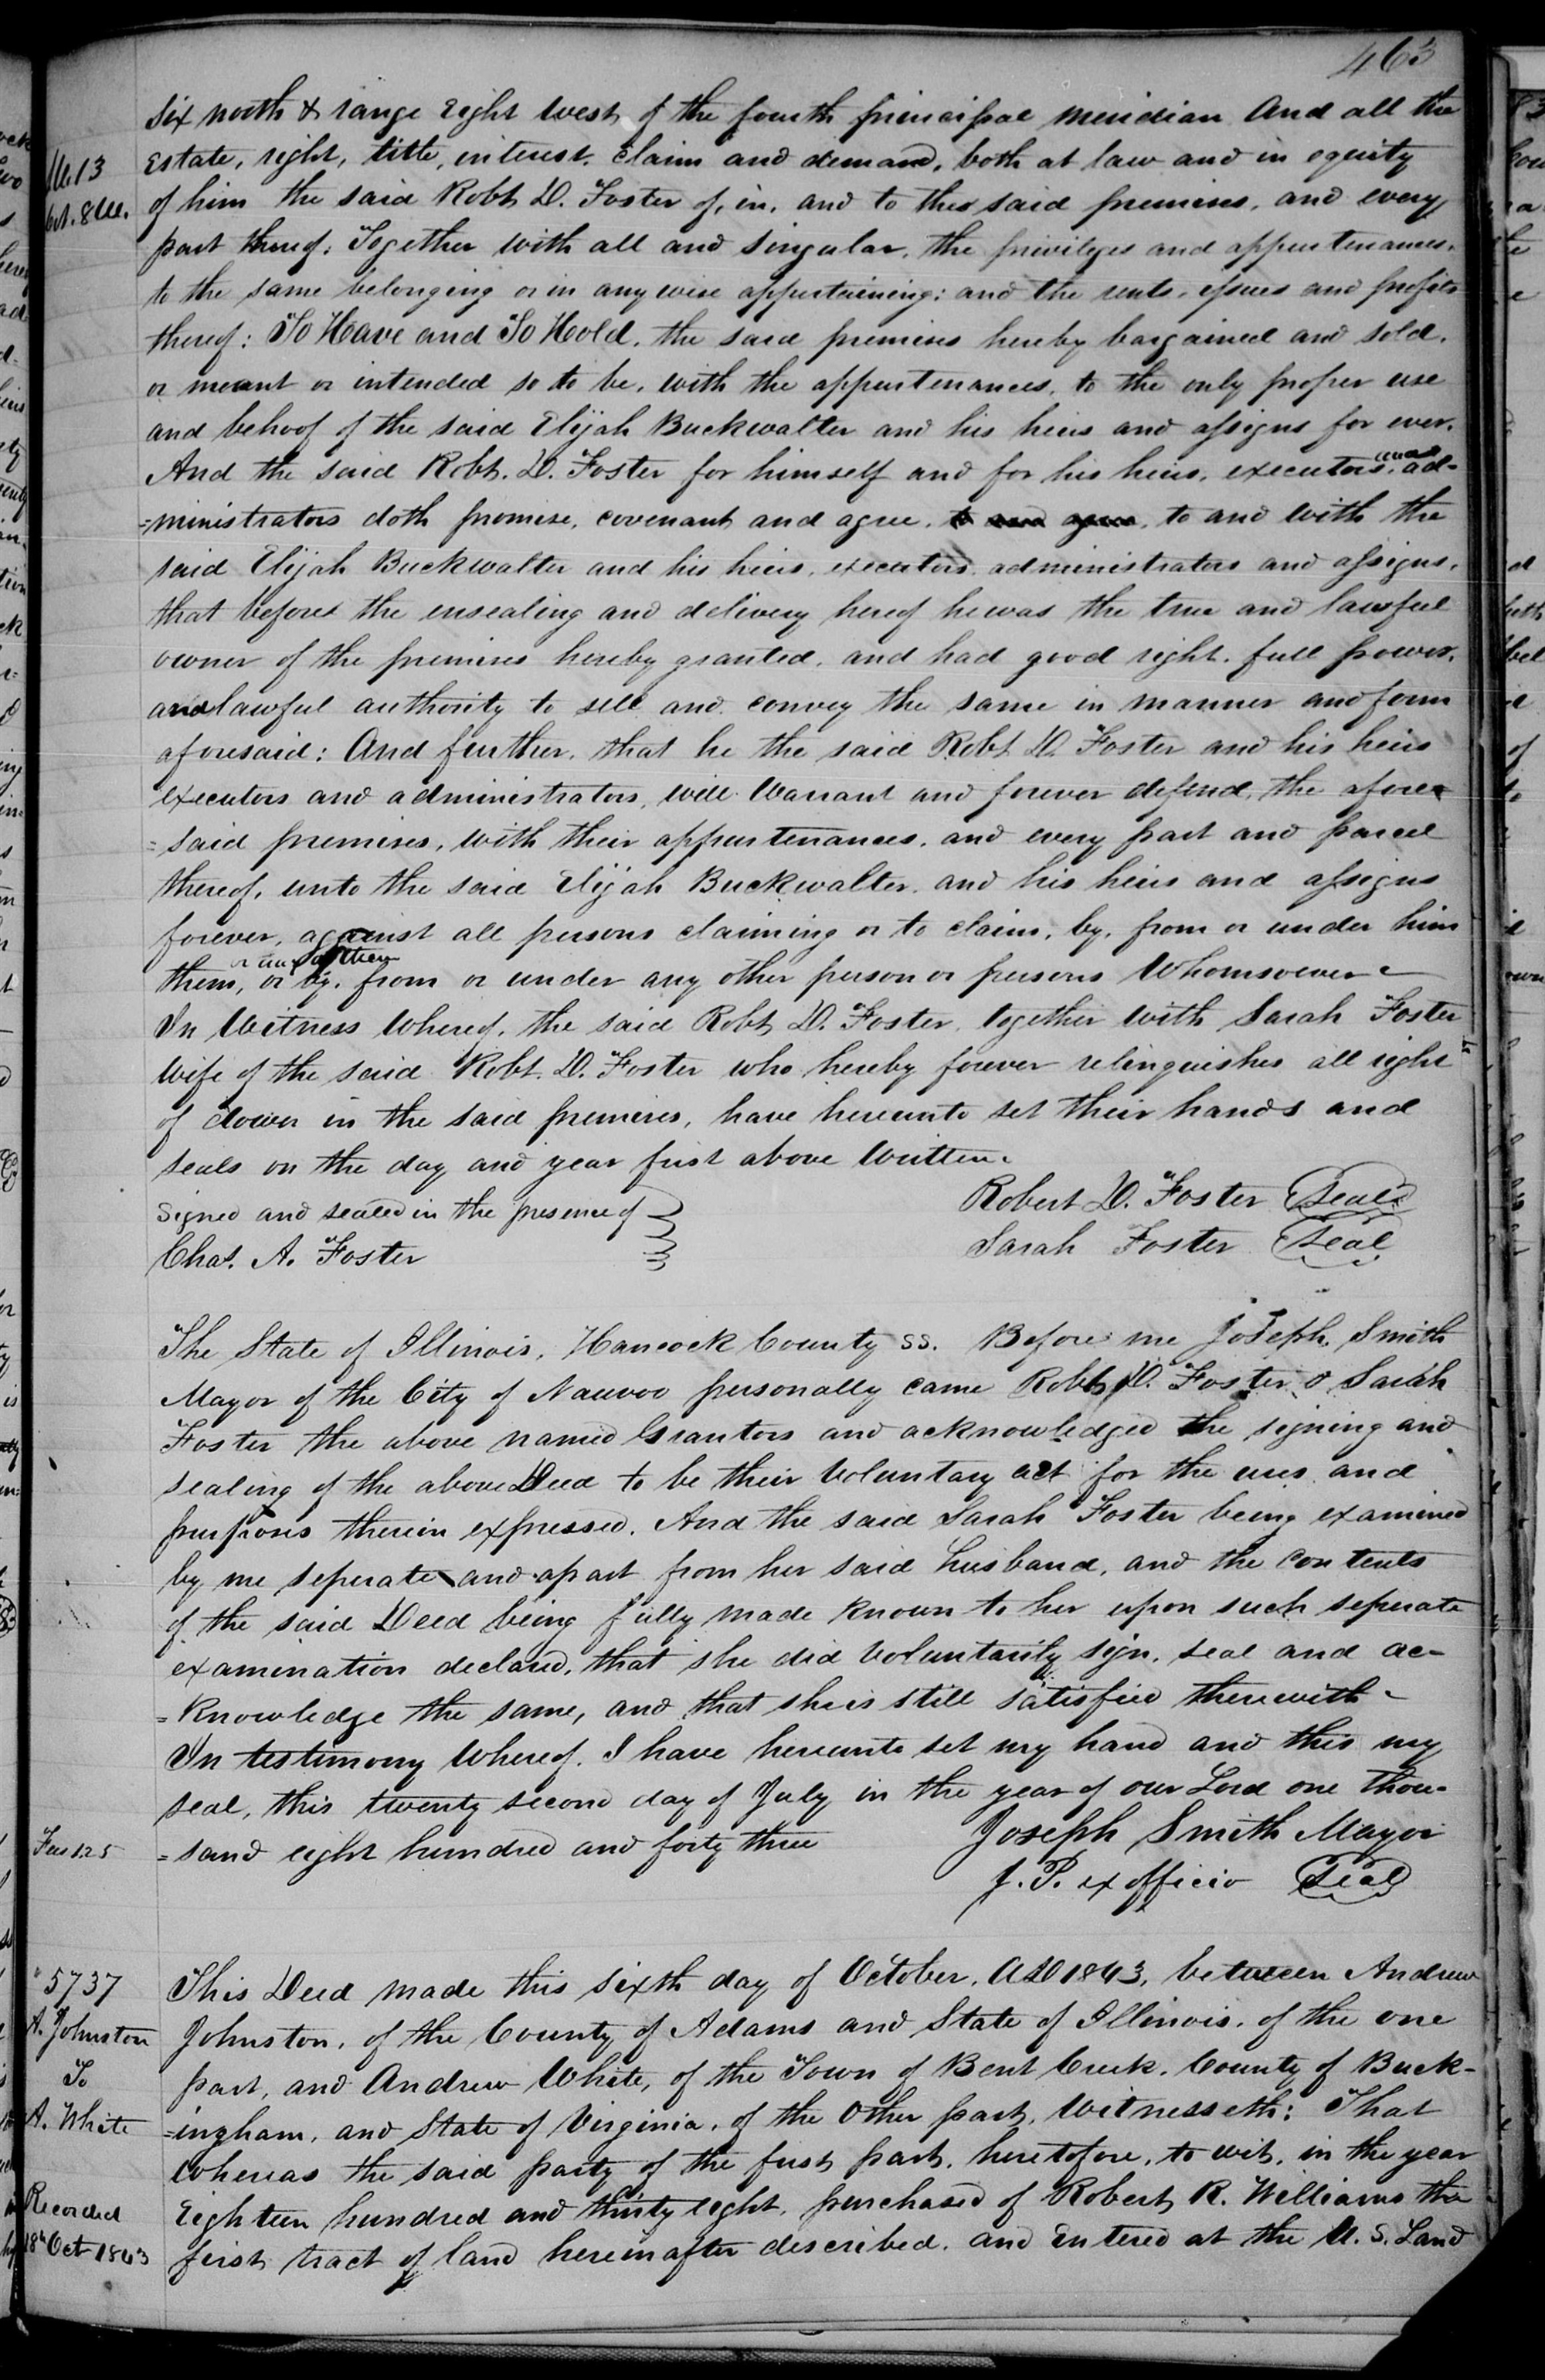 463
six north & range Eight West of the fourth principal meridian And all the
Estate, right, title, interest, claim and demand, both at law and in equity
of him the said Robt. D. Foster of, in, and to the said premises, and every
part thereof; Together with all and singular, the privileges and appurtenances,
to the same belonging or in any wise appertaining; and the rents, issues and profits
thereof: To Have and To Hold, the said premises hereby bargained and sold,
or meant or intended so to be, with the appurtenances, to the only proper use
and behoof of the said Elijah Buckwalter and his heirs and assigns for ever.
And the said Robt. D. Foster for himself and for his heirs, executors, and ad-
=ministrators doth promise, covenant and agree, to and agree, to and with the
said Elijah Buckwalter and his heirs, executors, administrators and assigns,
that before the ensealing and delivery hereof he was the true and lawful
owner of the premises hereby granted, and had good right, full power,
and lawful authority to sell and convey the same in manner and form
aforesaid: And further, that he the said Robt D. Foster and his heirs
executors and administrators, will Warrant and forever defend, the afore=
=said premises, with their appurtenances, and every part and parcel
thereof, unto the said Elijah Buckwalter, and his heirs and assigns
forever, against all persons claiming or to claim, by, from or under him
or any of them
them, or by, from or under any other person or persons Whomsoever.
In Witness Whereof, the said Robt D. Foster, together with Sarah Foster
Wife of the said Robt. D. Foster who hereby forever relinquishes all right
of dower in the said premises, have hereunto set their hands and
seals on the day and year first above Written.
Signed and sealed in the presence of Robert D. Foster Seal
Chas. A. Foster Sarah Foster Seal
The State of Illinois, Hancock County ss. Before me Joseph Smith
Mayor of the City of Nauvoo personally came Robt D. Foster & Sarah
Foster the above named Grantors and acknowledged the signing and
sealing of the above Deed to be their Voluntary act for the uses and
purposes therein expressed. And the said Sarah Foster being examined
by me seperate and apart from her said husband, and the contents
of the said Deed being fully made known to her upon such seperate
examination declared, that she did Voluntarily sign, seal and ac-
=knowledge the same, and that she is still satisfied therewith.
In testimony Whereof, I have hereunto set my hand and this my
seal, this twenty second day of July in the year of our Lord one thou-
Fees 125 =sand eight hundred and forty three Joseph Smith Mayor
J. P. ex officio Seal
5737 This Deed made this sixth day of October, AD 1843, between Andrew
A. Johnston Johnston, of the County of Adams and State of Illinois, of the one
To part, and Andrew White, of the Town of Bent Creek, County of Buck-
A. White =ingham, and State of Virginia, of the Other part, Witnesseth: That
Whereas the said party of the first part, heretofore, to wit, in the year
Recorded Eighteen hundred and thirty eight, purchased of Robert R. Williams the
18th Oct 1843 first tract of land hereinafter described, and Entered at the U. S. Land